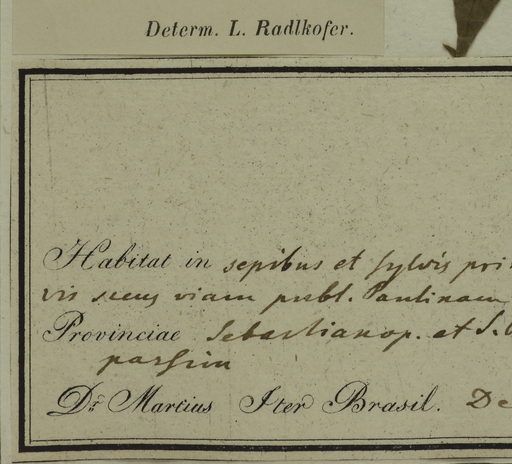 Determ. L. Radlkofer.
Habitat in sepibus et sylvis pri
vis secus viam publ. Paulinam
Provinciae Sebastianop. et S.
passim
Dr. Martius Iter Brasil. De